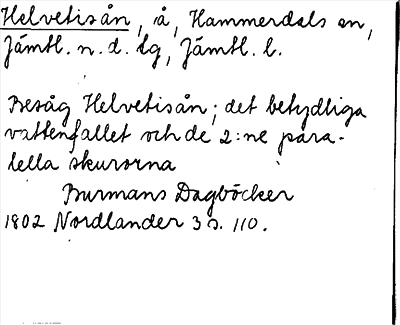 Helvetisån, å, Hammerdals sn,
Jämtl. n. d. lg, Jämtl. l.
Besåg Helvetisån; det betydliga
vattenfallet och de 2:ne para-
lella skurorna
Burmans Dagböcker
1802 Nordlander 3 s. 110.